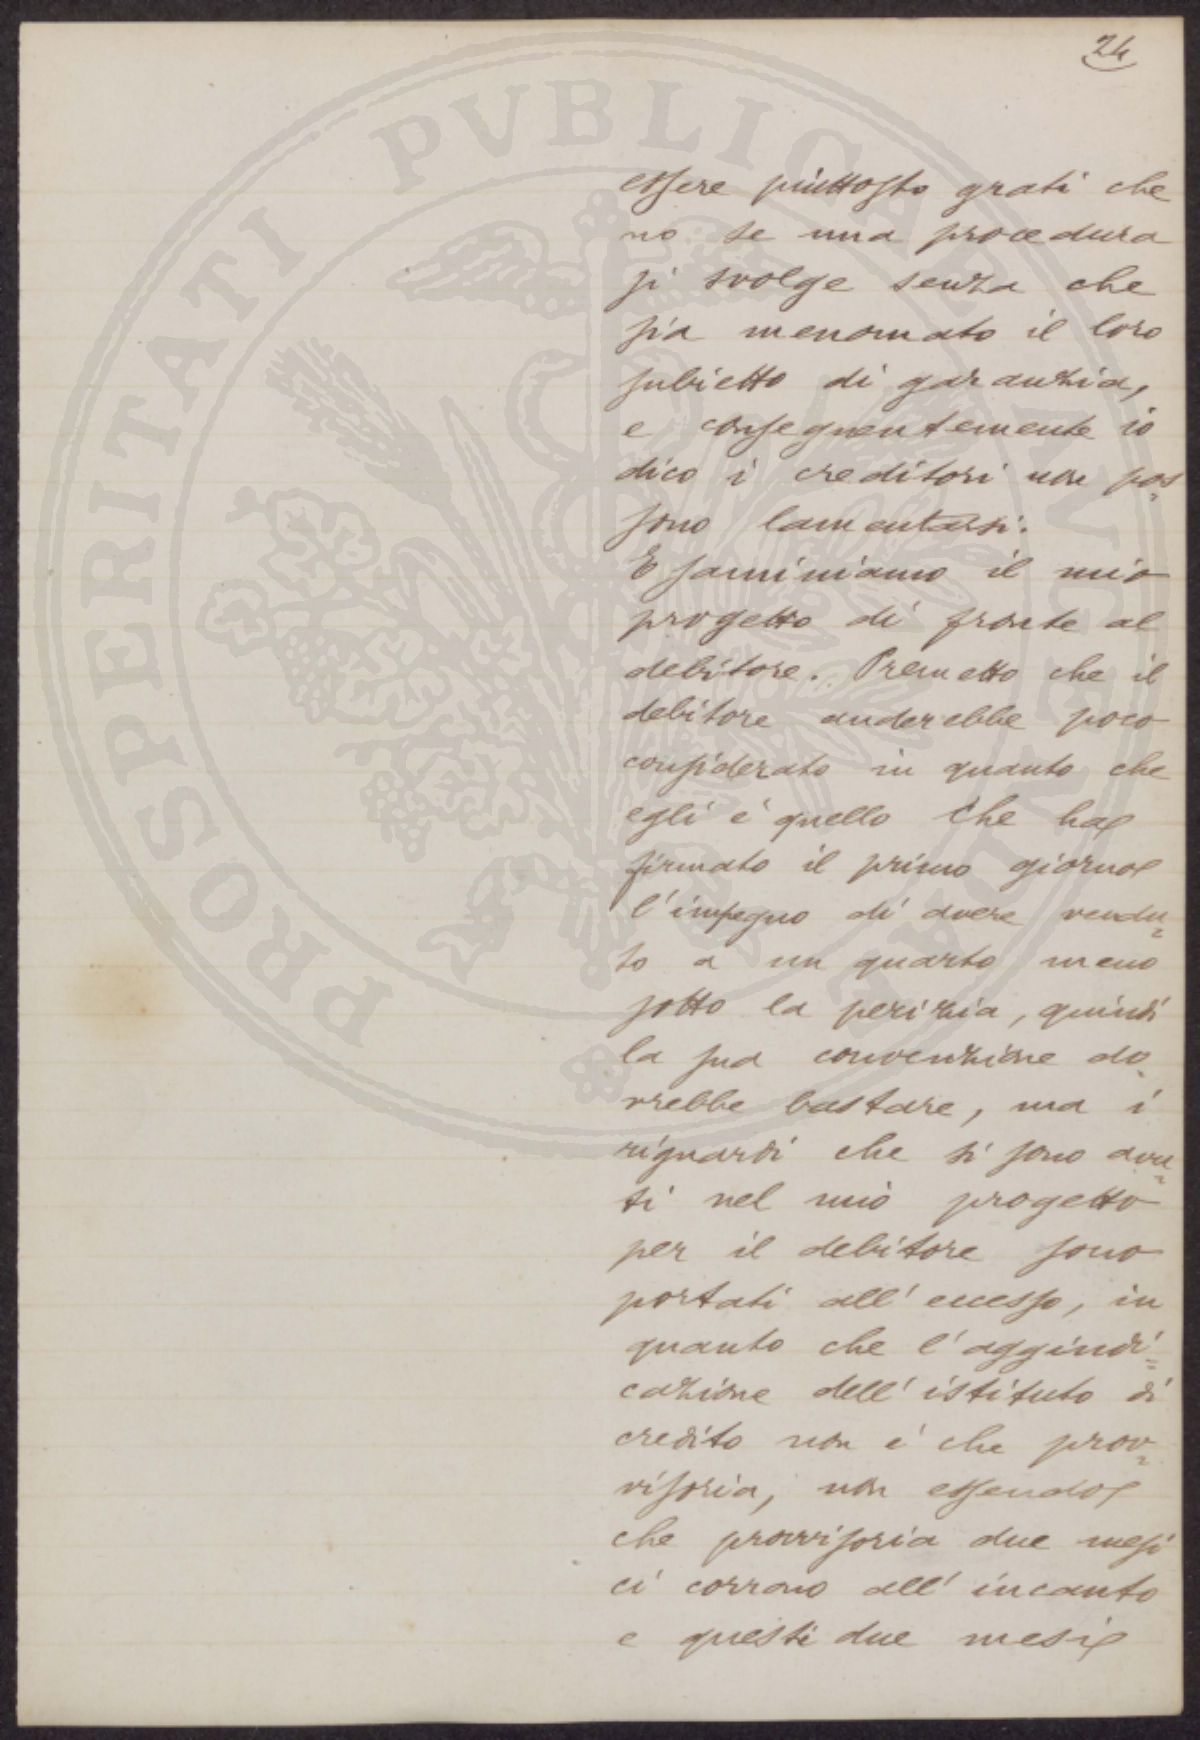 24
essere piuttosto grati che
no se una procedura
si svolge senza che
sia menomato il loro
subietto di garanzia,
e conseguentemente io
dico i creditori non pos
sono lamentarsi.
Esaminiamo il mio
progetto di fronte al
debitore. Premetto che il
debitore anderebbe poco
considerato in quanto che
egli é quello che ha
firmato il primo giorno
l'impegno di avere vendu=
to a un quarto meno
sotto la perizia, quindi
la sua convenzione do
vrebbe bastare, ma i
riguardi che si sono avu=
ti nel mio progetto
per il debitore sono
portati all'eccesso, in
quanto che l'aggiudi=
cazione dell'istituto di
credito non é che prov=
visoria, non essendo
che provvisoria due mesi
ci corrono all'incanto
e questi due mesi
PROSPERITATI PVBLICAE AVGENDAE